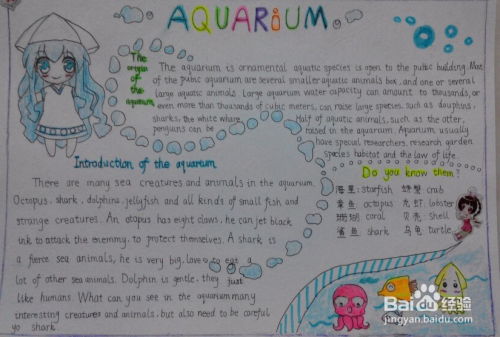 AQUARIUM
The origin of the aquarium
The aquarium is ornamental aquatic species is open to the public building. Most
of the pubic aquarium are several smaller aquatic animals box, and one or several
large aquatic animals. Large aquarium water capacity can amount to thousands, or
even more than thousands of cubic meters, can raise large species, such as douphins,
sharks, the white whare,
penguins can be
Half of aquatic animals, such as the otter,
raised in the aquarium. Aquarium usually
have special researchers, research garden
species habitat and the law of life.
Introduction of the aquarium
There are many sea creatures and animals in the aquarium.
Octopus, shark, dolphins, jellyfish and all kinds of small fish and
strange creatures. An otopus has eight claws, he can jet black
ink to attack the enemmy, to protect themselves. A shark is
a fierce sea animals, he is very big, love to eat a
lot of other sea animals. Dolphin is gentle, they just
like humans. What can you see in the aquarium many
interesting creatures and animals, but also need to be careful
yo shark.
Do you know them?
海星 starfish 螃蟹 crab
章鱼 octopus 龙虾 lobster
珊瑚 coral 贝壳 shell
鲨鱼 shark 乌龟 turtle
Baidu 经验
jingyan.baidu.com